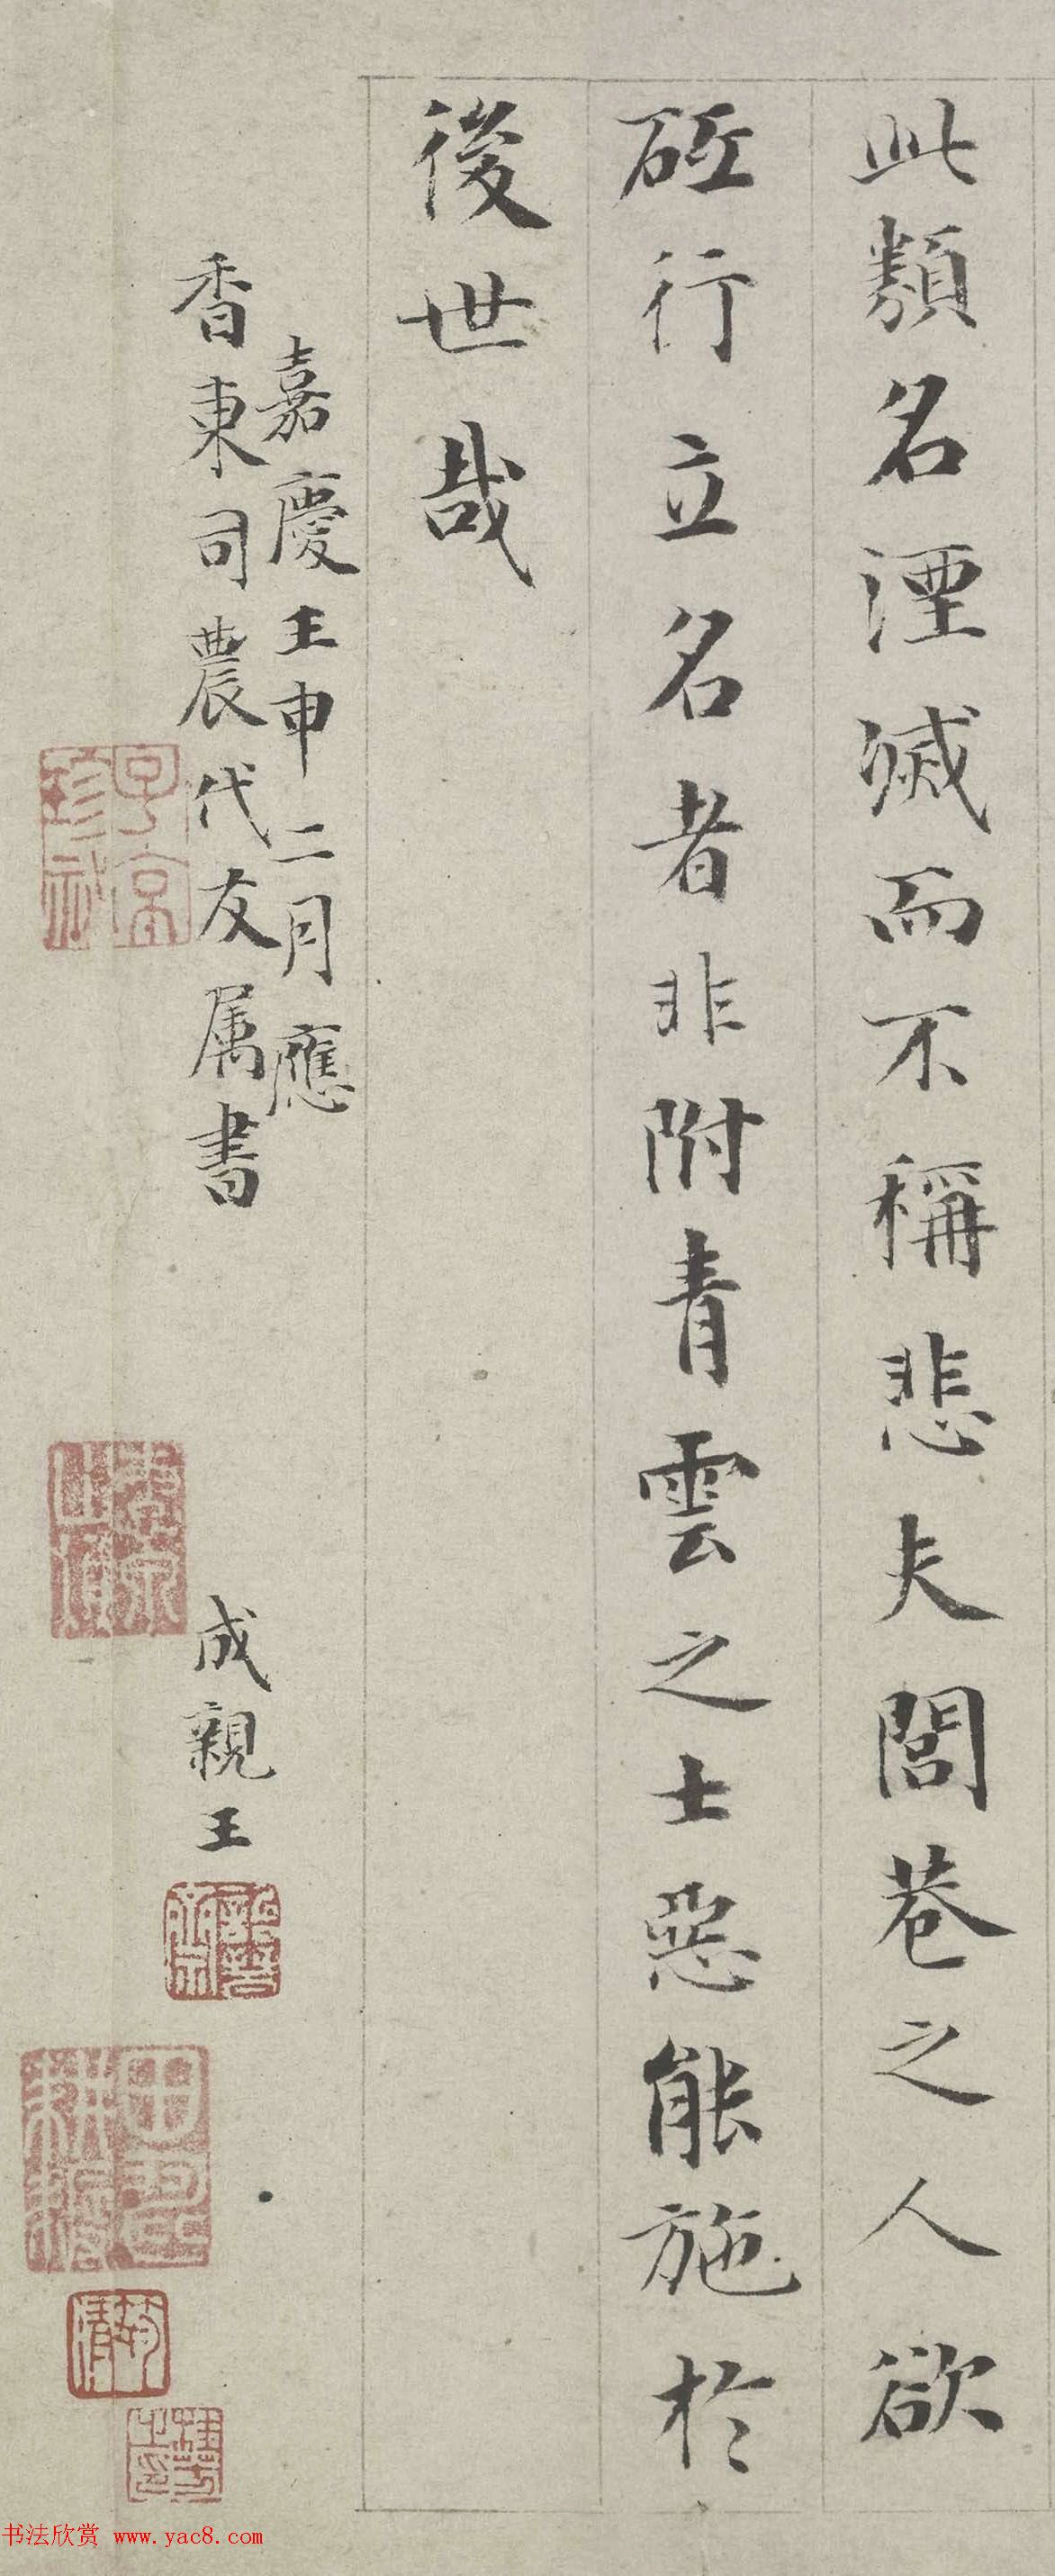 此類名湮滅而不稱悲夫閭巷之人欲
砥行立名者非附青雲之士惡能施於
後世哉
嘉慶壬申二月應
香東司農代友属書
成親王
子京
珍祕
筠清
书法欣赏 www.yac8.com